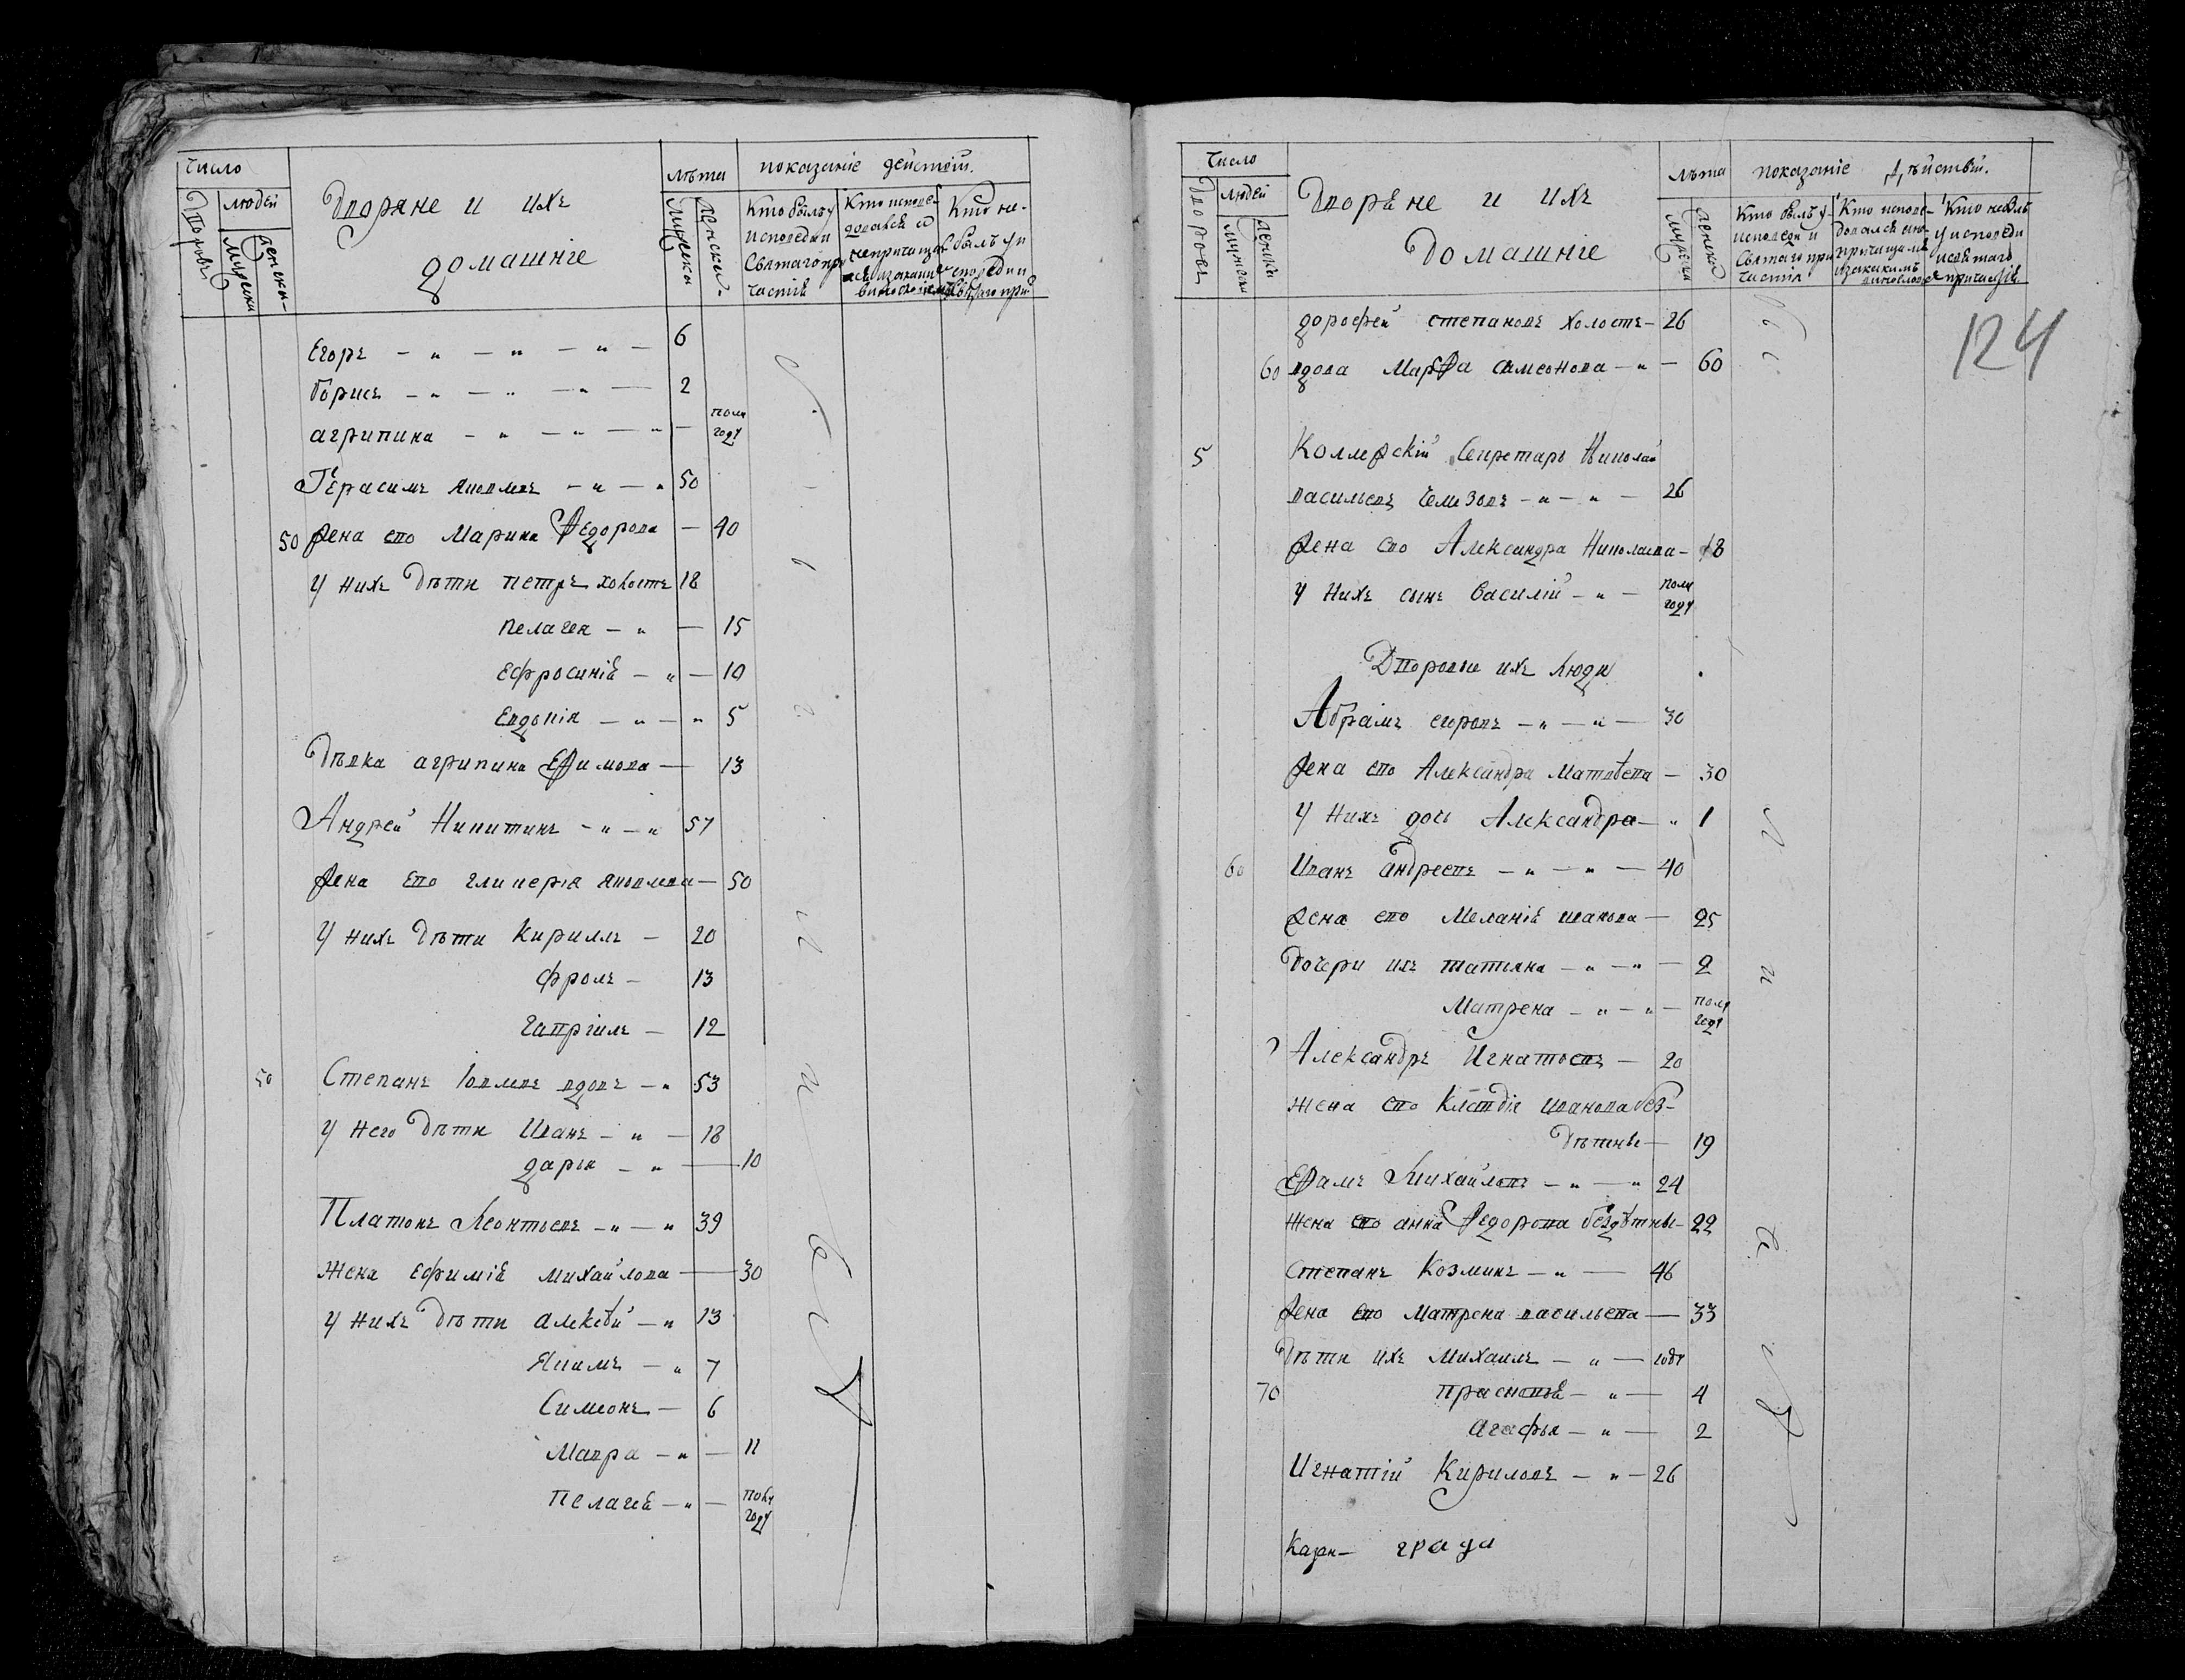 число
лѣта
показаніе действій.
Дворовъ
людей
Дворяне и ихъ
домашніе
мужеска
женска
мужеска
женска.
Кто былъ у
исповеди и
Святаго при
частія
Кто испове-
довался а
не причащал
ся и за каким
винословіемъ
Кто не
былъ у и
споведи и
святаго при
Егоръ — „ — „ — „ — 6
борисъ — „ — „ — „ — 2
агрипина — „ — „ — „ — полу
году
Герасимъ яковлевъ — „ — „ 50
50 Жена ево Марина Федорова — 40
у нихъ дѣти петръ холостъ 18
пелагея — „ — 15
Ефросинія — „ — 10
Евдокія — „ — „ 5
Дѣвка агрипина Ефимова — 13
Андрей Никитинъ — „ — „ 57
Жена Ево гликерія яковлева — 50
у нихъ дѣти Кириллъ — 20
фролъ — 13
гавріилъ — 12
50 Степанъ Іовлевъ вдовъ — „ 53
у него дѣти Иванъ — „ — 18
дарья — „ — 10
Платонъ Леонтьевъ — „ — „ 39
Жена Ефимія михайлова — 30
у нихъ дѣти алексѣй — „ 13
Якимъ — „ 7
Симеонъ — 6
Мавра — „ — 11
Пелагея — „ — полу
году
число
лѣта
показаніе дѣйствій.
Дворовъ
людей
Дворяне и ихъ
домашніе
мужески
женски
мужеска
женска
Кто былъ у
исповеди и
святаго при
частія
Кто испове-
довался а не
причащался
и за какимъ
винословіе
Кто не былъ
у исповеди
и святаго
причастія
дорофей степановъ холостъ — 26
124
60 вдова Марфа симеонова — „ — 60
5 Колежскій Секретарь Николай
васильевъ Чемезовъ — „ — „ — 26
Жена ево Александра Николаева — 18
у нихъ сынъ Василій — „ — полу
году
Дворовые ихъ люди
Абрамъ егоровъ — „ — „ — 30
Жена ево Александра Матвѣева — 30
у нихъ дочь Александра — „ 1
60 Иванъ андреевъ — „ — „ — 40
Жена ево Меланія иванова — 25
Дочери ихъ татьяна — „ — „ — 2
Матрена — „ — „ — полу
году
Александръ Игнатьевъ — 20
жена ево Клавдія иванова без-
дѣтны — 19
Ефимъ Михайловъ — „ — „ 24
жена ево анна Федорова бездѣтны — 22
Степанъ Козминъ — „ — 46
Жена ево Матрена васильева — 33
Дѣти ихъ Михаилъ — „ — году
70 прасковья — „ — 4
Агафья — „ — 2
Игнатій Кириловъ — „ — 26
града